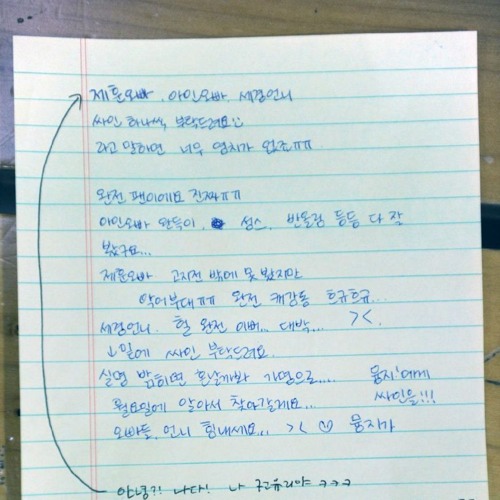 제훈오빠. 아인오빠. 세경언니
싸인 하나씩, 부탁드려요
라고 말하면 너무 염치가 없죠ㅠㅠ
완전 팬이에요 진짜ㅠㅠ
아인오빠 완득이, 성스, 반올림 등등 다 잘
봤구요...
제훈오빠 고지전 밖에 못 봤지만
악어부대ㅠㅠ 완전 캐감동 흐규흐규...
세경언니. 헐 완전 이뻐... 대박... ><.
↓밑에 싸인 부탁드려요.
실명 밝히면 혼날까봐 가면으로.... 뭉지'에게
월요일에 알아서 찾아갈게요... 싸인을!!!
오빠들, 언니 힘내세요... >< 뭉지가
안녕?! 나다! 나 구유리야 ㅋㅋㅋ